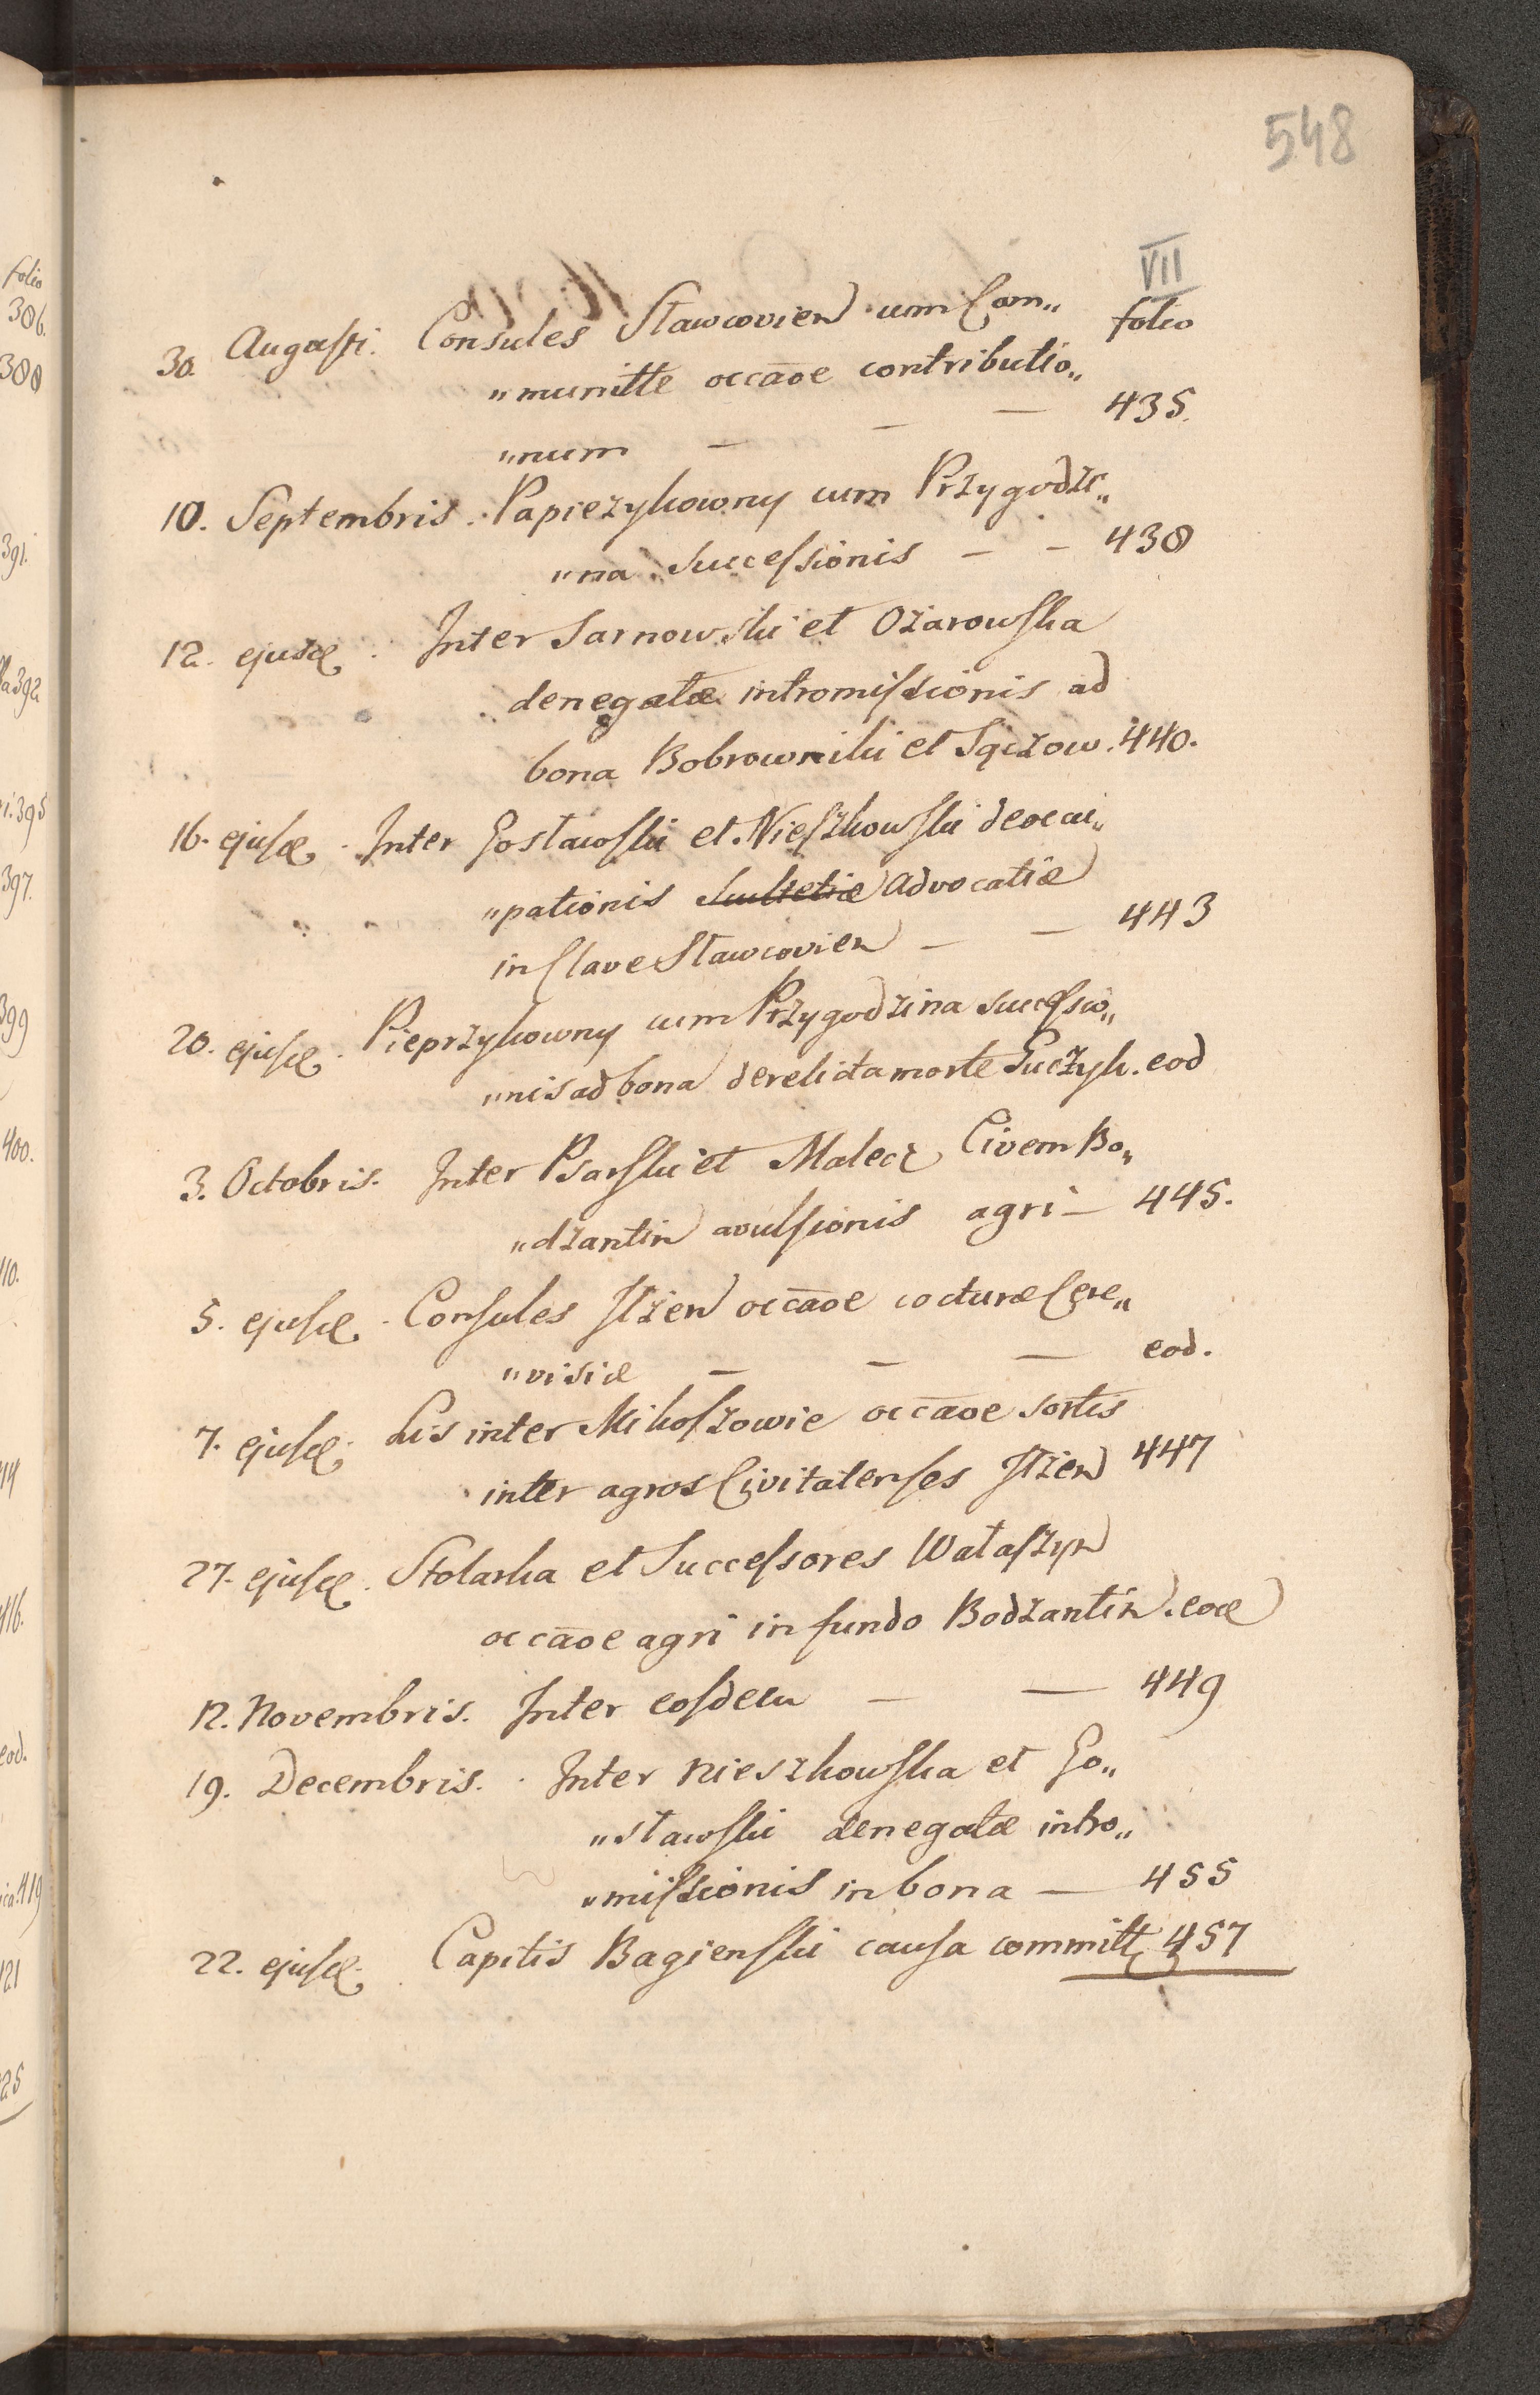 548
VII
folio
30. Augusti. Consules Sławcovien cum Com„
„munitte occāoe contributio„
„num — — — 435.
10. Septembris. Papiezykowny cum Przygodzi„
„na Successionis — — 438
12. ejusd. Inter Sarnowski et Ożarowska
denegatæ intromissionis ad
bona Bobrowniki et Sączow. 440.
16. ejusd. Inter Gosławski et Nieszkowski deoccu„
„pationis Scultetiæ Advocatiæ
in Clave Sławcovien — — 443
20. ejusd. Pieprzykowny cum Przygodzina successio„
„nis ad bona derelicta morte Guczyk. eod
3. Octobris. Inter Psarski et Malecz Civem Bo„
„dzantin avulsionis agri — 445.
5. ejusd. Consules Iłżen occāoe cocturæ Cere„
„visiæ — — — eod.
7. ejusd. Lis inter Mikoszowie occāoe sortis
inter agros Civitatenses Iłżen 447
27. ejusd. Stolarka et Successores Wataszyn
occāoe agri in fundo Bodzantin. eod
12. Novembris. Inter eosdem — — 449
19. Decembris. Inter Nieszkowska et Go„
„sławski denegatæ intro„
„missionis in bona — 455
22. ejusd. Capitis Bagienski causa committ 457
folio
306.
388
391.
392
395
397.
399
400.
110.
416.
eod.
419
121
25